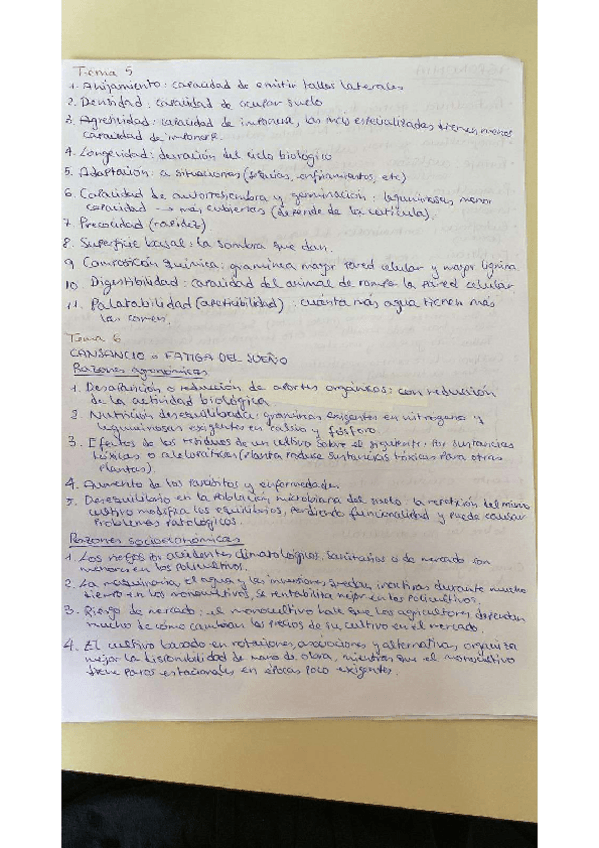 Tema 5
1. Ahijamiento: capacidad de emitir tallos laterales
2. Densidad: capacidad de ocupar suelo
3. Agresividad: capacidad de imponerse, las más especializadas tienen menos
capacidad de imponerse.
4. Longevidad: duración del ciclo biológico
5. Adaptación: a situaciones (sequías, enfriamientos, etc)
6. Capacidad de autorresiembra y germinación: leguminosas menor
capacidad → más cubiertas (depende de la cutícula).
7. Precocidad (rapidez)
8. Superficie basal: la sombra que dan.
9. Composición química: gramínea mayor pared celular y mayor lignina.
10. Digestibilidad: capacidad del animal de romper la pared celular
11. Palatabilidad (apetecibilidad): cuánta más agua tienen más
las comen.
Tema 6
CANSANCIO o FATIGA DEL SUEÑO
Razones agronómicas
1. Desaparición o reducción de aportes orgánicos: con reducción
de la actividad biológica.
2. Nutrición desequilibrada: gramíneas exigentes en nitrógeno y
leguminosas exigentes en calcio y fósforo.
3. Efectos de los residuos de un cultivo sobre el siguiente: por sustancias
tóxicas o alelopáticas (planta produce sustancias tóxicas para otras
plantas).
4. Aumento de los parásitos y enfermedades
5. Desequilibrio en la población microbiana del suelo: la repetición del mismo
cultivo modifica los equilibrios, perdiendo funcionalidad y puede causar
problemas patológicos.
Razones socioeconómicas
1. Los riesgos por accidentes climatológicos, sanitarios o de mercado son
menores en los policultivos.
2. La maquinaria, el agua y las inversiones quedan inactivas durante mucho
tiempo en los monocultivos, se rentabilita mejor en los policultivos.
3. Riesgo de mercado: el monocultivo hace que los agricultores dependan
mucho de cómo cambian los precios de su cultivo en el mercado.
4. El cultivo basado en rotaciones, asociaciones y alternativas, organiza
mejor la disponibilidad de mano de obra, mientras que el monocultivo
tiene paros estacionales en épocas poco exigentes.